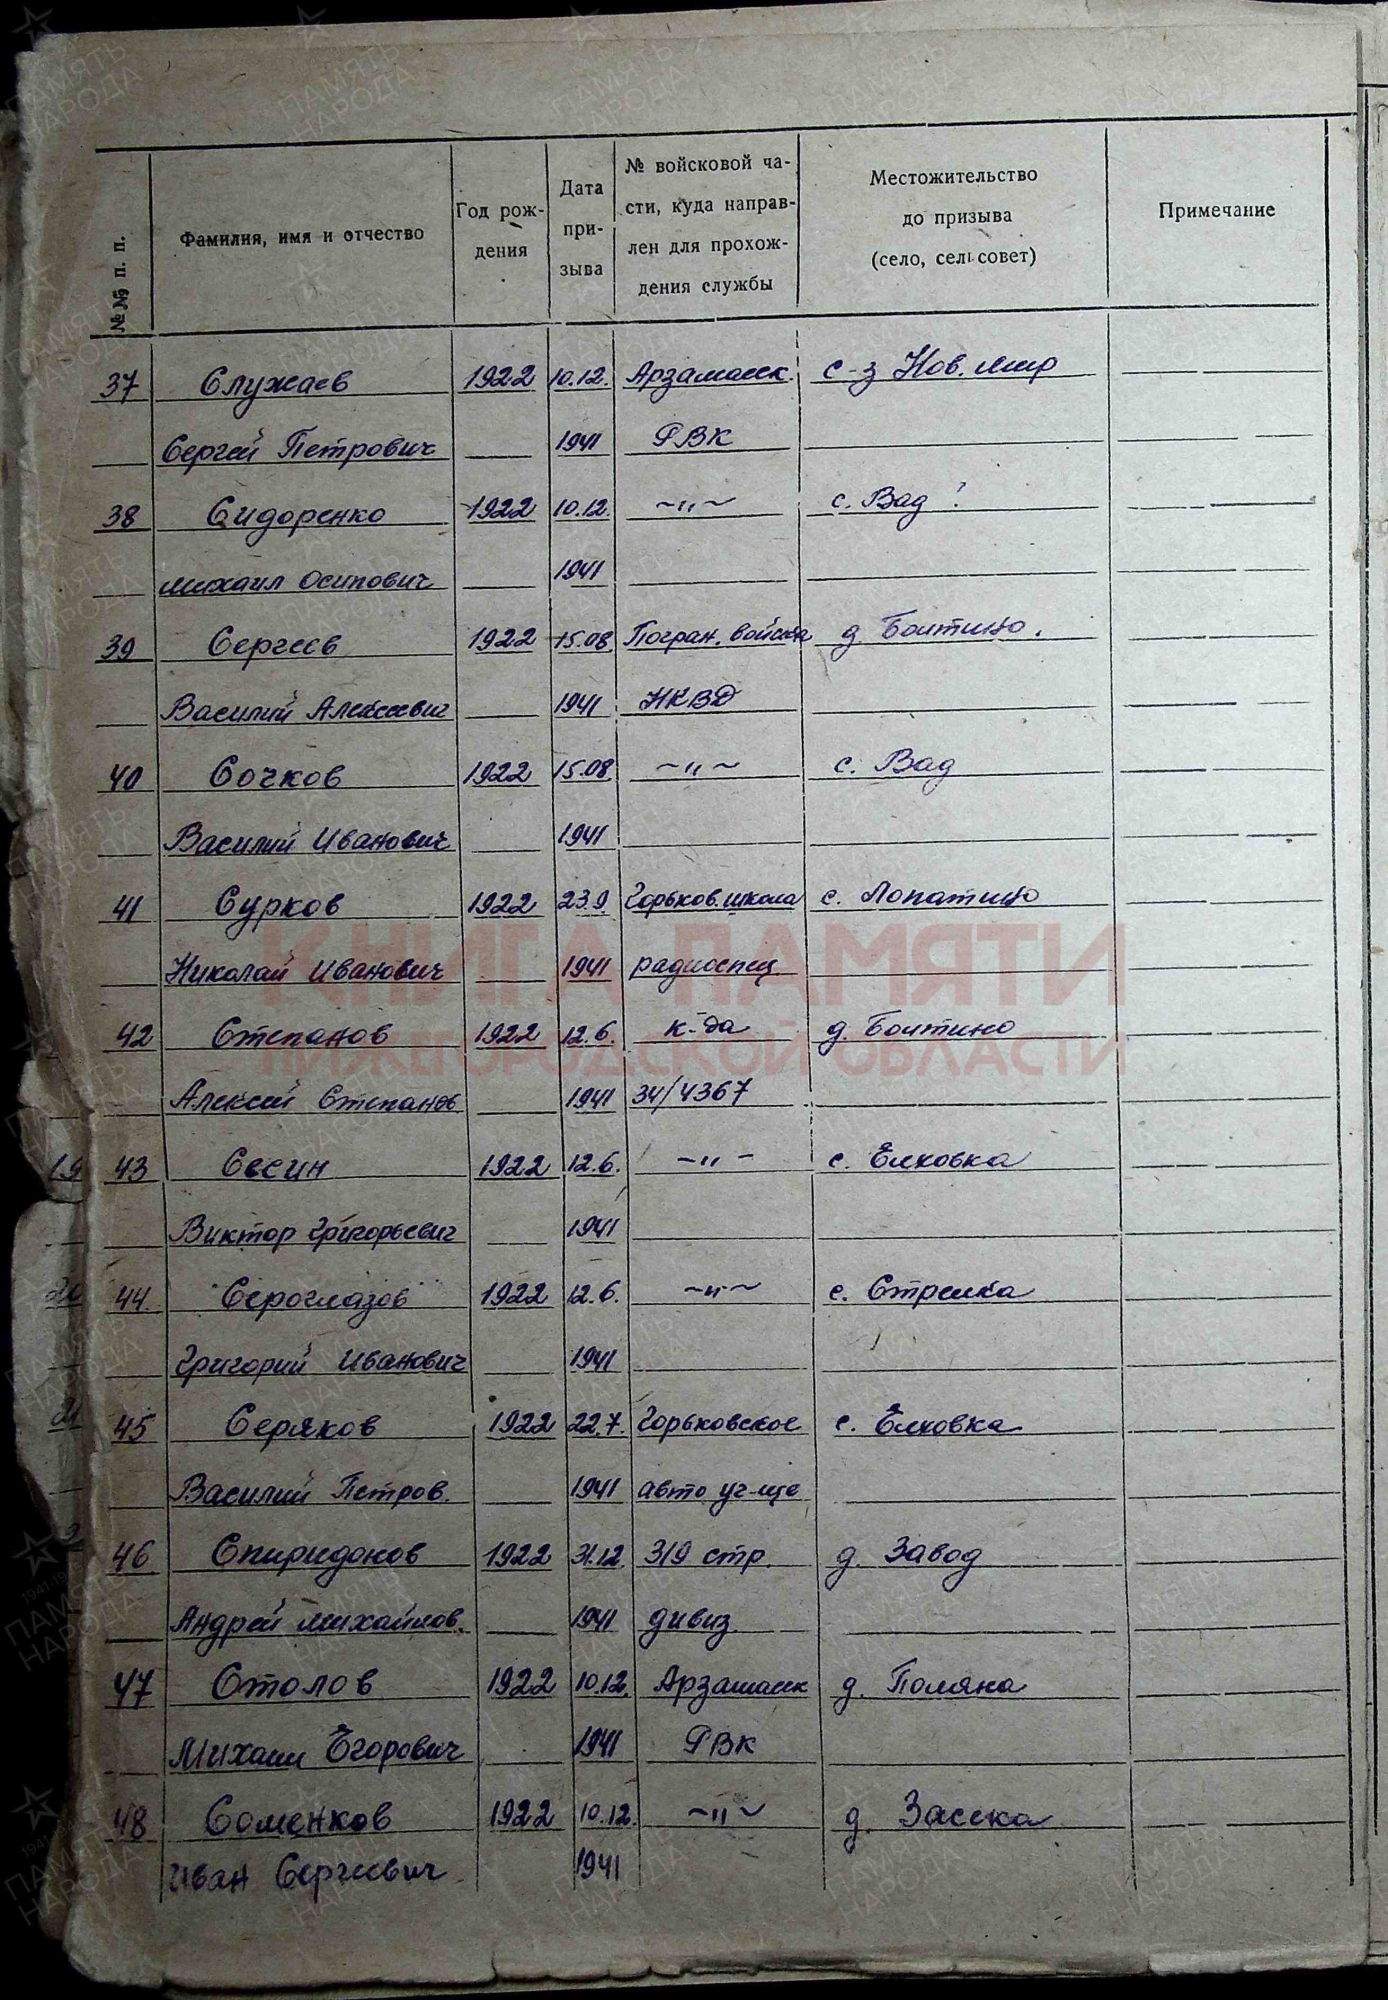 №№ п. п.
Фамилия, имя и отчество
Год рождения
Дата призыва
№ войсковой части, куда направлен для прохождения службы
Местожительство до призыва (село, сельсовет)
Примечание
37 Служаев 1922 10.12. Арзамасск. с-з Нов. мир
Сергей Петрович 1941 РВК
38 Сидоренко 1922 10.12. ~"~ с. Вад ?
Михаил Осипович 1941
39 Сергеев 1922 15.08. Погран. войска д. Болтино.
Василий Алексеевич 1941 НКВД
40 Сочков 1922 15.08. ~"~ с. Вад
Василий Иванович 1941
41 Сурков 1922 23.9. Горьков. школа с. Лопатино
Николай Иванович 1941 радиоспец
42 Степанов 1922 12.6. к-да д. Болтино
Алексей Степанов 1941 34/4367
19 43 Сесин 1922 12.6. ~"~ с. Елховка
Виктор Григорьевич 1941
20 44. Сероглазов 1922 12.6. ~"~ с. Стрелка
Григорий Иванович 1941
21 45 Серяков 1922 22.7. Горьковское с. Елховка
Василий Петров. 1941 авто уч-ще
46 Спиридонов 1922 31.12. 319 стр. д. Завод
Андрей Михайлов. 1941 дивиз
47 Столов 1922 10.12. Арзамасск д. Поляна
Михаил Егорович 1941 РВК
48 Соменков 1922 10.12. ~"~ д. Засека
Иван Сергеевич 1941
КНИГА ПАМЯТИ
НИЖЕГОРОДСКОЙ ОБЛАСТИ
ПАМЯТЬ НАРОДА